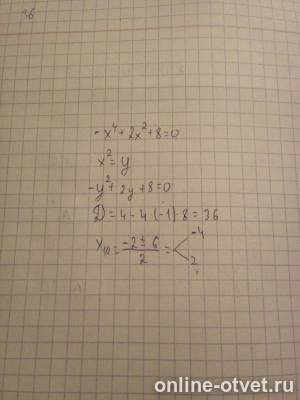 16
-x⁴+2x²+8=0
x²=y
-y²+2y+8=0
D=4-4·(-1)·8=36
x₁/₂=(-2±6)/2=< -4
2
online-otvet.ru